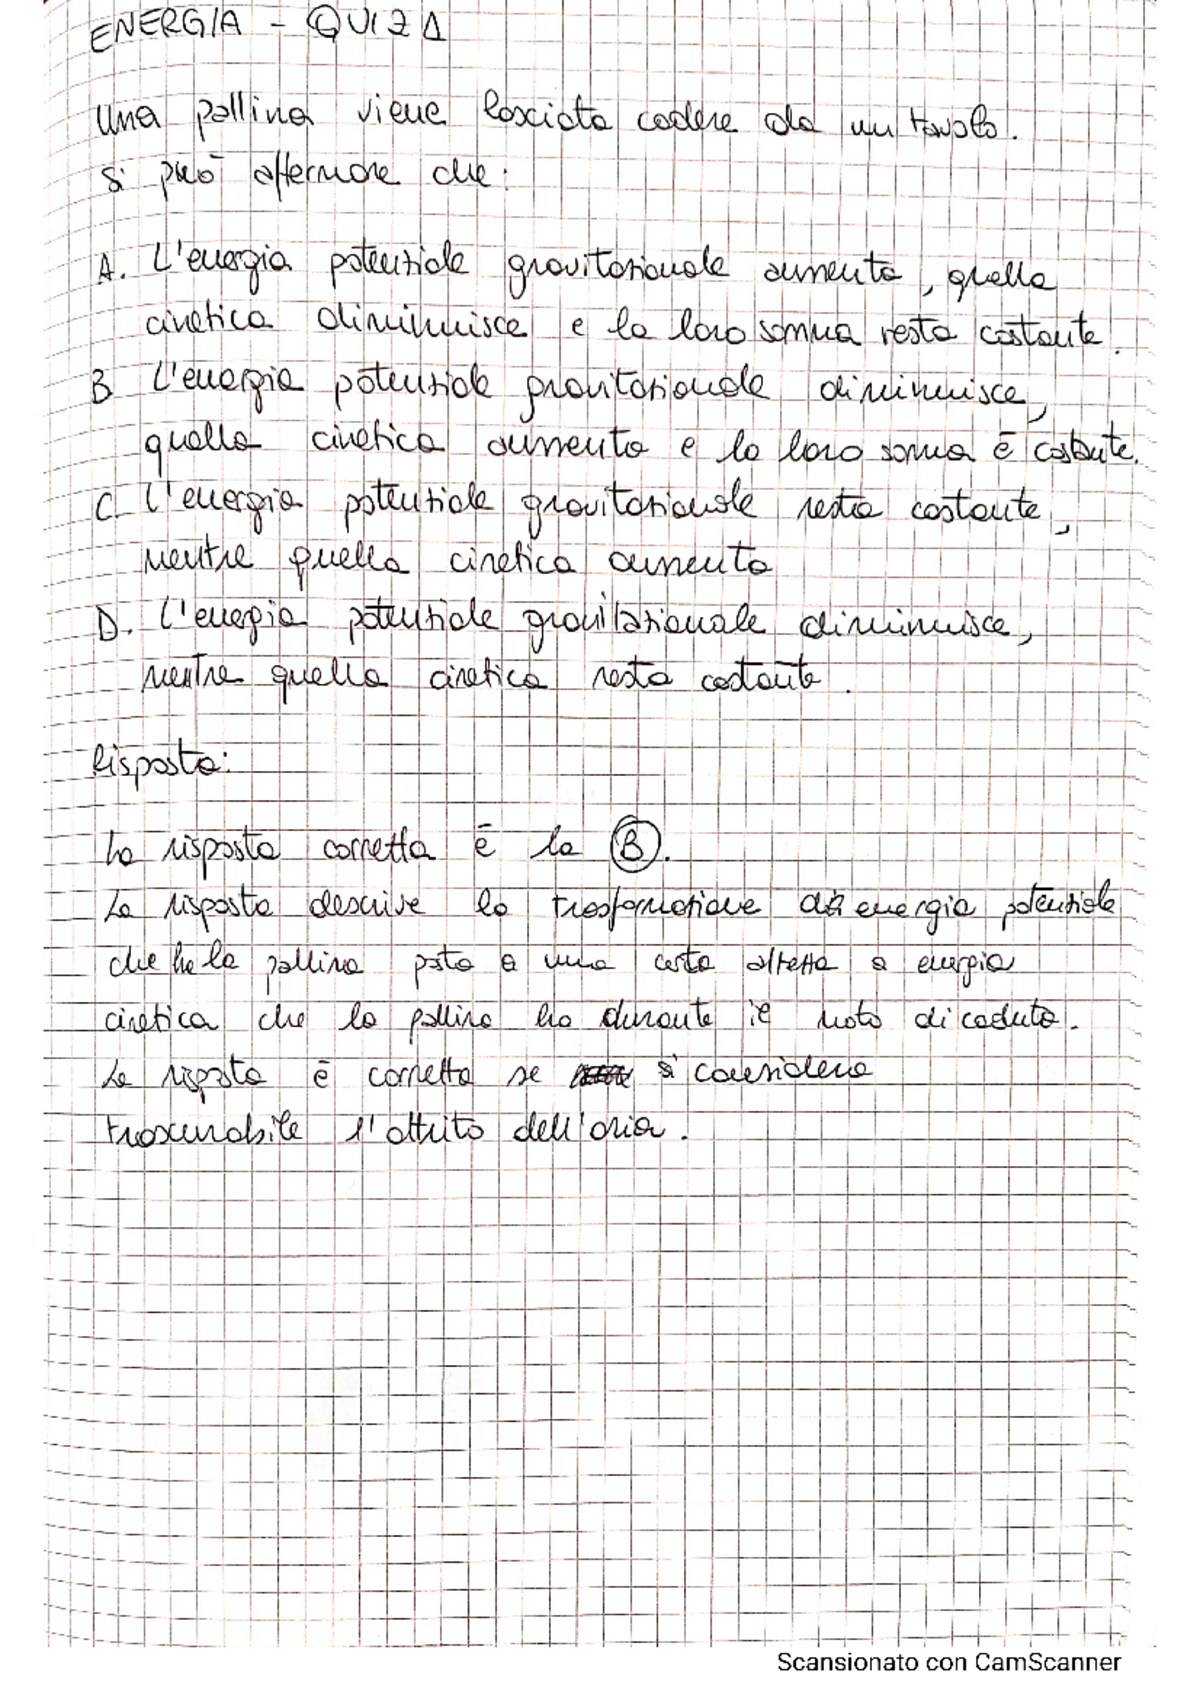 ENERGIA - QUIZ 1
Una pallina viene lasciata cadere da un tavolo.
Si può affermare che:
A. L'energia potenziale gravitazionale aumenta, quella
cinetica diminuisce e la loro somma resta costante.
B L'energia potenziale gravitazionale diminuisce,
quella cinetica aumenta e la loro somma è costante.
C. L'energia potenziale gravitazionale resta costante,
mentre quella cinetica aumenta
D. L'energia potenziale gravitazionale diminuisce,
mentre quella cinetica resta costante.
Risposta:
La risposta corretta è la B.
La risposta descrive la trasformazione di energia potenziale
che ha la pallina posta a una certa altezza a energia
cinetica che la pallina ha durante il moto di caduta.
La risposta è corretta se si considera
trascurabile l'attrito dell'aria.
Scansionato con CamScanner